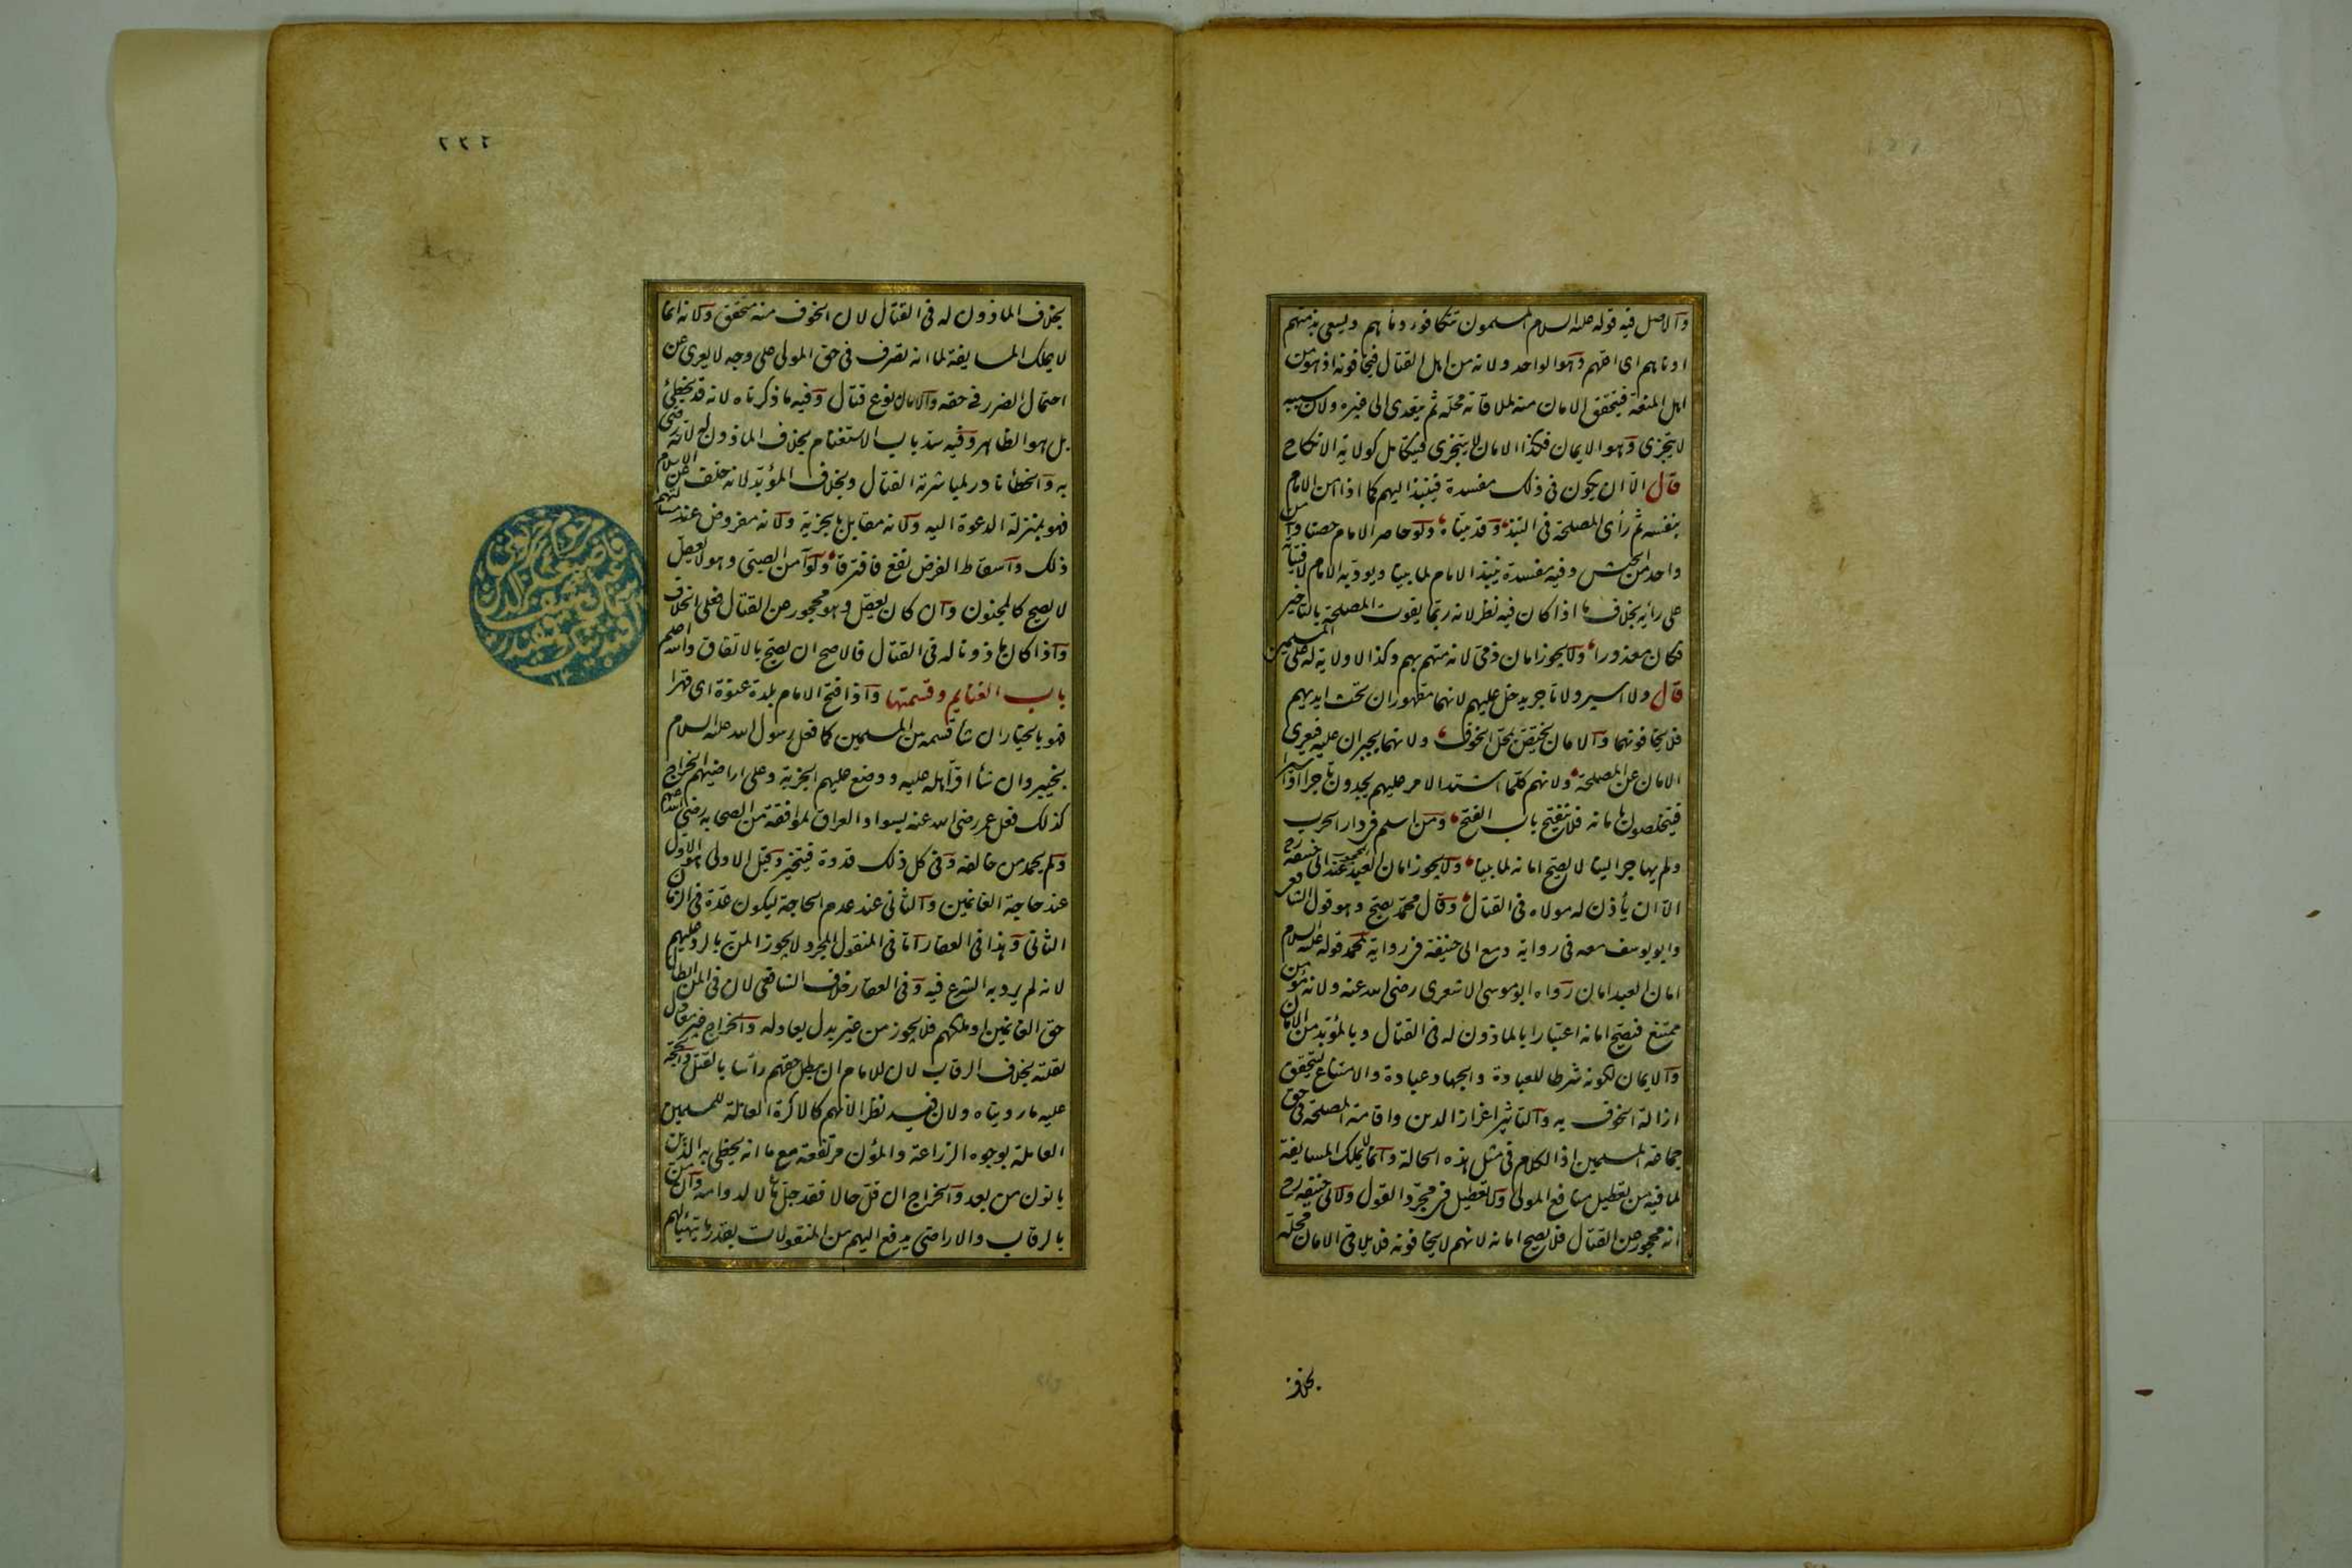 والاصل فيه قوله عليه السلام المسلمون تتكافؤ دماؤهم ويسعى بذمتهم
ادناهم اى اقلهم وهو الواحد ولانه من اهل القتال فيخافونه اذ هو من
اهل المنعة فيتحقق الامان منه لملاقاته محله ثم يتعدى الى غيره ولان سببه
لا يتجزى وهو الايمان فكذا الامان لا يتجزى فيتكامل كولاية الانكاح
قال الا ان يكون فى ذلك مفسدة فينبذ اليهم كما اذا امن الامام
بنفسه ثم رأى المصلحة فى النبذ وقد بيناه ولو حاصر الامام حصنا وآمن
واحد من الجيش وفيه مفسدة ينبذ الامام لما بينا ويؤدبه الامام لافتياته
على رأيه بخلاف ما اذا كان فيه نظر لانه ربما يفوت المصلحة بالتاخير
فكان معذورا ولا يجوز امان ذمى لانه متهم بهم وكذا لا ولاية له على المسلمين
قال ولا اسير ولا تاجر يدخل عليهم لانهما مقهوران تحت ايديهم
فلا يخافونهما والامان يختص بمحل الخوف ولانهما يجبران عليه فيعرى
الامان عن المصلحة ولانهم كلما اشتد الامر عليهم يجدون تاجرا او اسيرا
فيتخلصون بامانه فلا ينفتح باب الفتح ومن اسلم فى دار الحرب
ولم يهاجر الينا لا يصح امانه لما بينا ولا يجوز امان العبد المحجور عند ابى حنيفة رح
الا ان يأذن له مولاه فى القتال وقال محمد يصح وهو قول الشافعى
وابو يوسف معه فى رواية ومع ابى حنيفة فى رواية لمحمد قوله عليه السلام
امان العبد امان رواه ابو موسى الاشعرى رضى الله عنه ولانه مؤمن
ممتنع فيصح امانه اعتبارا بالماذون له فى القتال وبالمؤبد من الامان
والايمان لكونه شرطا للعبادة والجهاد عبادة والامتناع لتحقق
ازالة الخوف به والتاثير اعزاز الدين واقامة المصلحة فى حق
جماعة المسلمين اذ الكلام فى مثل هذه الحالة وانما لا يملك المسايفة
لما فيه من تعطيل منافع المولى ولا تعطيل فى مجرد القول ولابى حنيفة رح
انه محجور عن القتال فلا يصح امانه لانهم لا يخافونه فلا يلاقى الامان محله
بخلاف
٢٣٢
بخلاف الماذون له فى القتال لان الخوف منه متحقق ولانه انما
لا يملك المسايفة لما انه تصرف فى حق المولى على وجه لا يعرى عن
احتمال الضرر فى حقه والامان نوع قتال وفيه ما ذكرناه لانه قد يخطئ
بل هو الظاهر وفيه سد باب الاستغنام بخلاف الماذون له لانه رضى
به والخطأ نادر لمباشرته القتال وبخلاف المؤبد لانه خلف عن الاسلام
فهو بمنزلة الدعوة اليه ولانه مقابل بالجزية ولانه مفروض عند مسألتهم
ذلك واسقاط الفرض نفع فافترقا ولو آمن الصبى وهو لا يعقل
لا يصح كالمجنون وان كان يعقل وهو محجور عن القتال فعلى الخلاف
واذا كان ماذونا له فى القتال فالاصح ان يصح بالاتفاق والله اعلم
باب الغنايم وقسمتها واذا فتح الامام بلدة عنوة اى قهرا
فهو بالخيار ان شاء قسمه بين المسلمين كما فعل رسول الله عليه السلام
بخيبر وان شاء اقر اهله عليه ووضع عليهم الجزية وعلى اراضيهم الخراج
كذلك فعل عمر رضى الله عنه بسواد العراق لموافقة من الصحابة رضى الله عنهم
ولم يحمد من خالفه وفى كل ذلك قدوة فيتخير وقيل الاولى هو الاول
عند حاجة الغانمين والثانى عند عدم الحاجة ليكون عدة فى الزمان
الثانى وهذا فى العقار اما فى المنقول المجرد لا يجوز المن بالرد عليهم
لانه لم يرد به الشرع فيه وفى العقار خلاف الشافعى لان فى المن ابطال
حق الغانمين او ملكهم فلا يجوز من غير بدل يعادله والخراج غير معادل
لقلته بخلاف الرقاب لان للامام ان يبطل حقهم راسا بالقتل والحجة
عليه ما رويناه ولان فيه نظرا لانهم كالاكرة العاملة للمسلمين
العاملة بوجوه الزراعة والمؤن مرتفعة مع ما انه يحظى به الذين
ياتون من بعد والخراج ان قل حالا فقد جل مآلا لدوامه وان من
بالرقاب والاراضى يدفع اليهم من المنقولات بقدر ما يتهيأ لهم